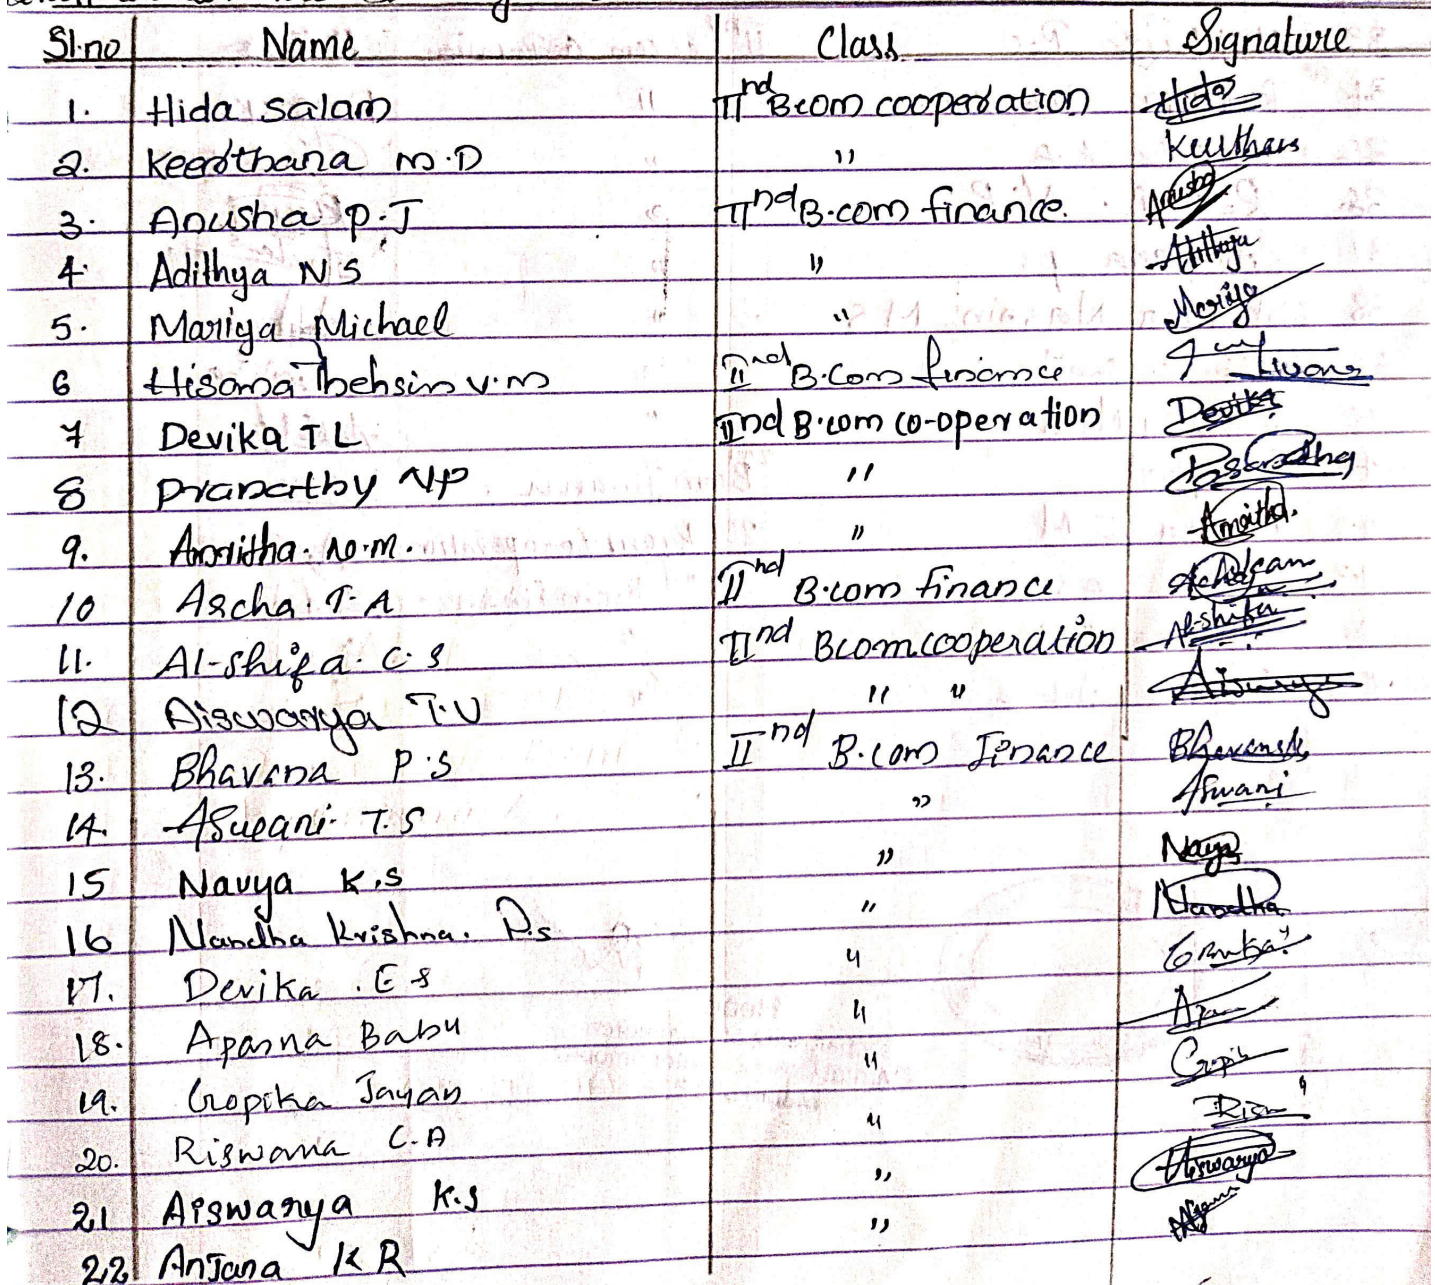 Sl.no Name Class Signature
1. Hida Salam IInd B.com cooperation Hida
2. Keerthana M.D " Keerthana
3. Anusha P.J IInd B.com finance. Anusha
4. Adithya N S " Adithya
5. Mariya Michael " Mariya
6 Hisana Thehsin V.M IInd B.Com finance
7 Devika T L IInd B.com co-operation Devika
8 Pranathy N P "
9. Amritha. N.M. " Amritha.
10 Ascha. T. A IInd B.com finance
11. Al-shifa. C. S IInd Bcom cooperation Al-shifa
12 Aiswarya T.U " " Aiswarya
13. Bhavana P.S IInd B.com Finance
14. Aswani T.S " Aswani
15 Navya K.S "
16 Nandha Krishna. P.s " Nandha
17. Devika . E S "
18. Aparna Babu "
19. Gopika Jayan "
20. Riswana C.A "
21 Aiswarya K.S " Aiswarya
22 Anjana K R "